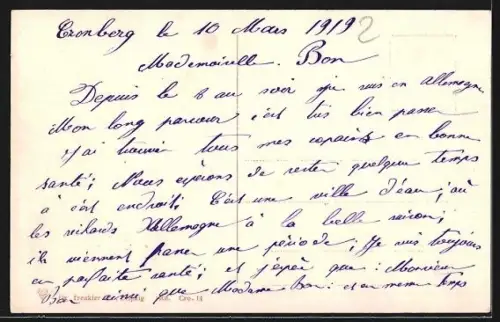 Cronberg le 10 Mars 1919 2
Mademoiselle. Bon
Depuis le 8 au soir je suis en Allemagne
Mon long parcour c'est très bien passer
j'ai trouvé tous mes copains en bonne
santé; Nous espérons de rester quelque temps
à cést endroit; C'est une ville d'eau; où
les richards d'Allemagne à la belle saison;
ils viennent passer une période; Je suis toujours
en parfaite santé; et j'éspère que: Monsieur
Bon ainsi que Madame Bon: et en meme temps
Dr. Trenkler Leipzig Cro. 11